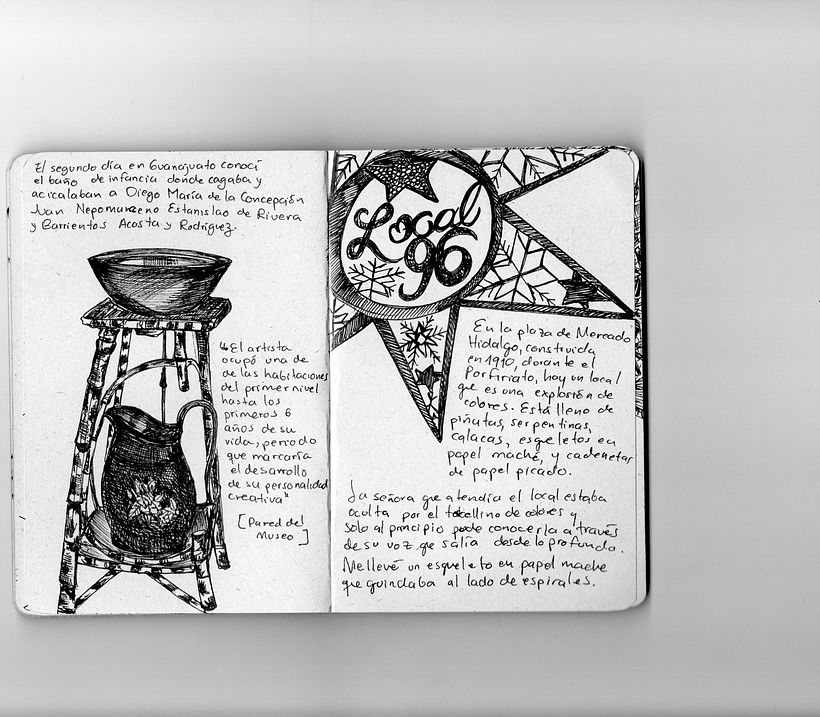 El segundo día en Guanajuato conocí
el baño de infancia donde cagaba y
acicalaban a Diego María de la Concepción
Juan Nepomuceno Estanislao de Rivera
y Barrientos Acosta y Rodríguez.
"El artista
ocupó una de
de las habitaciones
del primer nivel
hasta los
primeros 6
años de su
vida, periodo
que marcaría
el desarrollo
de su personalidad
creativa"
[Pared del
Museo]
Local
96
En la plaza de Mercado
Hidalgo, construida
en 1910, durante el
Porfiriato, hay un local
que es una explosión de
colores. Está lleno de
piñatas, serpentinas,
calacas, esqueletos en
papel maché, y cadenetas
de papel picado.
La señora que atendía el local estaba
oculta por el torbellino de colores y
solo al principio pude conocerla a través
de su voz que salía desde lo profundo.
Me llevé un esqueleto en papel maché
que guindaba al lado de espirales.